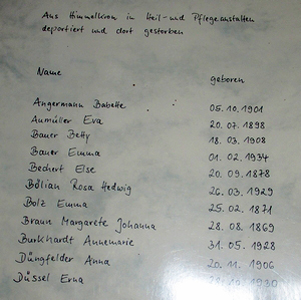 Aus Himmelkron in Heil- und Pflegeanstalten
deportiert und dort gestorben
Name geboren
Angermann Babette 05. 10. 1901
Aumüller Eva 20. 07. 1898
Bauer Betty 18. 03. 1908
Bauer Emma 01. 02. 1934
Bechert Else 20. 09. 1878
Bölian Rosa Hedwig 26. 03. 1929
Bolz Emma 25. 02. 1871
Braun Margarete Johanna 28. 08. 1869
Burkhardt Annemarie 31. 05. 1928
Düngfelder Anna 20. 11. 1906
Düssel Erna 10. 1930